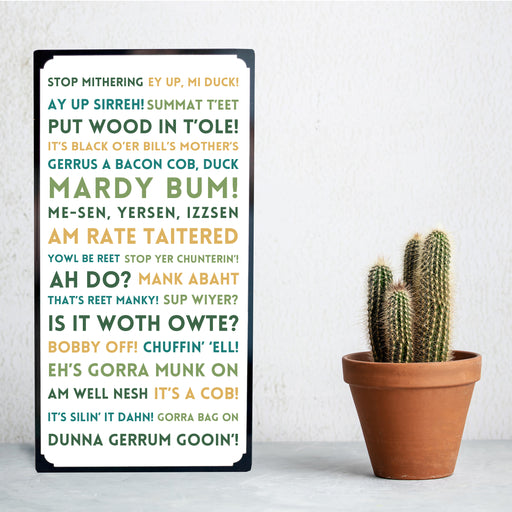 STOP MITHERING EY UP, MI DUCK!
AY UP SIRREH! SUMMAT T'EET
PUT WOOD IN T'OLE!
IT'S BLACK O'ER BILL'S MOTHER'S
GERRUS A BACON COB, DUCK
MARDY BUM!
ME-SEN, YERSEN, IZZSEN
AM RATE TAITERED
YOWL BE REET STOP YER CHUNTERIN'!
AH DO? MANK ABAHT
THAT'S REET MANKY! SUP WIYER?
IS IT WOTH OWTE?
BOBBY OFF! CHUFFIN' 'ELL!
EH'S GORRA MUNK ON
AM WELL NESH IT'S A COB!
IT'S SILIN' IT DAHN! GORRA BAG ON
DUNNA GERRUM GOOIN'!